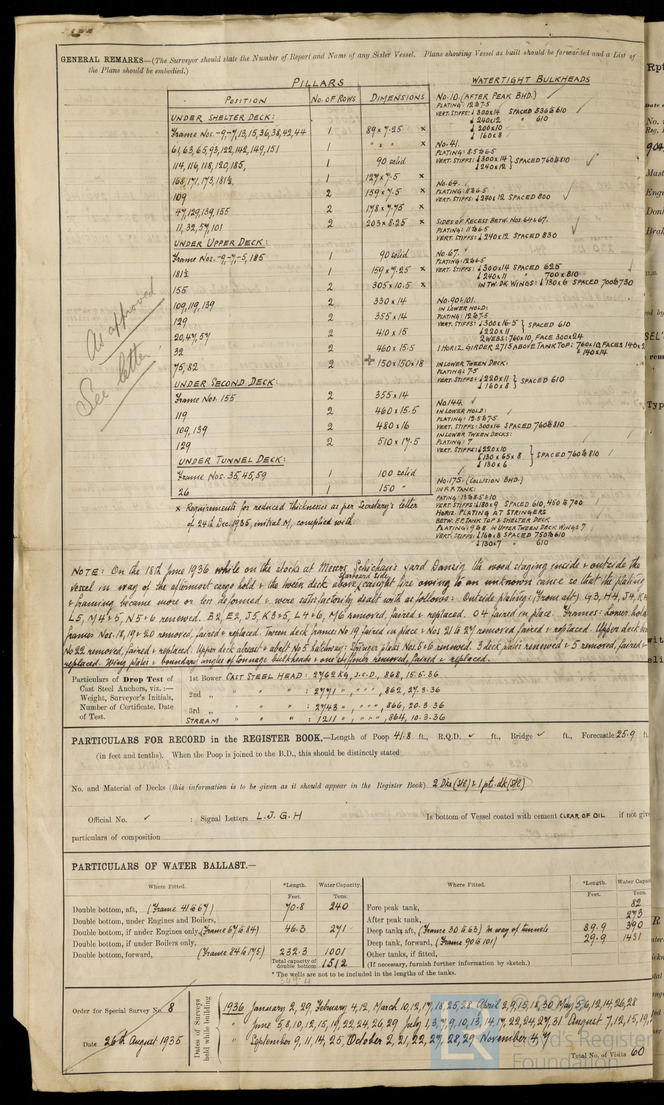 GENERAL REMARKS—(The Surveyor should state the Number of Report and Name of any Sister Vessel. Plans showing Vessel as built should be forwarded and a List of
the Plans should be embodied.)
PILLARS
POSITION No. OF ROWS DIMENSIONS
UNDER SHELTER DECK:
Frame Nos. -9-7, 13, 15, 36, 38, 42, 44 1 89 x 7.25 x
61, 63, 65, 93, 122, 142, 149, 151 1 " x " x
114, 116, 118, 120, 185, 1 90 solid
168, 171, 173, 181½ 1 127 x 7.5 x
109 2 159 x 7.5 x
47, 129, 139, 155 2 178 x 7.75 x
11, 32, 57, 101 2 203 x 8.25 x
UNDER UPPER DECK:
Frame Nos. -9, -7, -5, 185 1 90 solid
181½ 1 159 x 7.25 x
155 2 305 x 10.5 x
109, 119, 139 2 330 x 14
129 2 355 x 14
20, 47, 57 2 410 x 15
32 2 460 x 15.5
75, 82 2 150 x 150 x 18
UNDER SECOND DECK:
Frame Nos. 155 2 355 x 14
119 2 460 x 15.5
109, 139 2 480 x 16
129 2 510 x 17.5
UNDER TUNNEL DECK:
Frame Nos. 35, 45, 59 1 100 solid
26 1 150 "
x Requirements for reduced thicknesses as per Secretary's letter
of 24th Dec. 1935, initial M, complied with
As approved
See letter
WATERTIGHT BULKHEADS
No. 10. (AFTER PEAK BHD.)
PLATING: 12 to 7.5
VERT. STIFFS: 300x14 SPACED 536 to 610
240x12 " 610
200x10
160x8
No. 41.
PLATING: 8.5 to 6.5
VERT. STIFFS: 300x14 } SPACED 760 to 810
240x12 }
No. 64.
PLATING: 8 to 6.5
VERT. STIFFS: 240x12 SPACED 800
SIDES OF RECESS BETW. NOS. 64 to 67.
PLATING: 11 to 6.5
VERT. STIFFS: 240x12 SPACED 830
No. 67.
PLATING: 12 to 6.5
VERT. STIFFS: 300x14 SPACED 625
240x11 " 700 x 810
IN TW. DK. WINGS: 130x6 SPACED 700 to 730
No. 90 to 101.
IN LOWER HOLD:
PLATING: 12 to 7.5
VERT. STIFFS: 300x16.5 } SPACED 610
220x11
2 WEBS: 760x10, FACE 300x24
1 HORIZ. GIRDER 2715 ABOVE TANK TOP: 760x10, FACES
140x14
IN LOWER TWEEN DECK:
PLATING: 7.5
VERT. STIFFS: 220x11 } SPACED 610
160x8 }
No. 144.
IN LOWER HOLD:
PLATING: 13.5 to 7.5
VERT. STIFFS: 300x14 SPACED 760 to 810
IN LOWER TWEEN DECKS:
PLATING: 7
VERT. STIFFS: 220x10
130x65x8 } SPACED 760 to 810
130x6
No. 175. (COLLISION BHD.)
IN F.P. TANK:
PLATING: 13 to 8.5 to 10
VERT. STIFFS 180x9 SPACED 610, 450 to 700
HORIZ. PLATING AT STRINGERS
BETW. F.P. TANK TOP & SHELTER DECK
PLATING: 9 to 8. IN UPPER TWEEN DECK WINGS 7
VERT. STIFFS: 160x8 SPACED 750 to 610
130x7 " 610
NOTE: On the 18th June 1936 while on the stocks at Messrs Schichau's yard Danzig the wood staging inside & outside the
Starboard side,
vessel in way of the aftermost cargo hold & the tween deck above, caught fire owing to an unknown cause so that the plating
& framing became more or less deformed & were satisfactorily dealt with as follows: Outside plating: (From aft) G3, H4, J4, K4
L5, M4 & 5, N5 & 6 renewed. B2, E2, J5, K3 & 5, L4 & 6, M6 removed, faired & replaced. O4 faired in place. Frames: Lower hold
frames Nos. 18, 19 & 20 removed, faired & replaced. Tween deck frames No 19 faired in place & Nos. 21 to 27 removed, faired & replaced. Upper deck
No 22 removed, faired & replaced. Upper deck abreast & abaft No 5 hatchway: Stringer plates Nos. 5 & 6 renewed. 3 deck plates renewed & 5 removed, faired &
replaced. Wing plates & boundary angles of tonnage bulkheads & one stiffener removed, faired & replaced.
Particulars of Drop Test of
Cast Steel Anchors, viz.:—
Weight, Surveyor's Initials,
Number of Certificate, Date
of Test.
1st Bower CAST STEEL HEAD: 2762 Kg, J.C.D, 868, 15.5.36
2nd " " " " : 2771 " , " , 862, 27.3.36
3rd " " " " : 2743 " , " , 866, 20.3.36
STREAM " " " : 1211 " , " , 864, 10.3.36
PARTICULARS FOR RECORD in the REGISTER BOOK.—Length of Poop 41.8 ft., R.Q.D. ✓ ft., Bridge ✓ ft., Forecastle 25.9 ft.
(in feet and tenths). When the Poop is joined to the B.D., this should be distinctly stated
No. and Material of Decks (this information is to be given as it should appear in the Register Book) 2 Dks (Stl) & 1 pt. dk (Stl)
Official No. ✓ : Signal Letters L.J.G.H Is bottom of Vessel coated with cement CLEAR OF OIL if not give
particulars of composition
PARTICULARS OF WATER BALLAST.—
Where Fitted. *Length. Water Capacity. Where Fitted. *Length. Water Capacity.
Feet. Tons. Feet. Tons.
Double bottom, aft, (Frame 41 to 67) 70.8 240
Double bottom, under Engines and Boilers,
Double bottom, if under Engines only, (Frame 67 to 84) 46.3 271
Double bottom, if under Boilers only,
Double bottom, forward, (Frame 84 to 175) 232.3 1001
Total capacity of double bottom 1512
Fore peak tank, 82
After peak tank, 273
Deep tank, aft, (Frame 30 to 63) in way of tunnels 89.9 390
Deep tank, forward, (Frame 90 to 101) 29.9 1431
Other tanks, if fitted,
(If necessary, furnish further information by sketch.)
* The wells are not to be included in the lengths of the tanks.
Order for Special Survey No. 8
Date 26th August 1935
Dates of Surveys
held while building
1936 January 2, 29, February 4, 12, March 10, 12, 17, 18, 25, 28 April 2, 9, 15, 18, 30 May 5, 6, 12, 14, 26, 28
" June 5, 8, 10, 12, 15, 19, 22, 24, 26, 29 July 1, 3, 7, 9, 10, 13, 14, 17, 22, 24, 27, 31 August 7, 12, 15, 19,
" September 9, 11, 14, 25, October 2, 21, 22, 27, 28, 29 November 4, 7
Total No. of Visits 60
LR
Lloyd's Register
Foundation